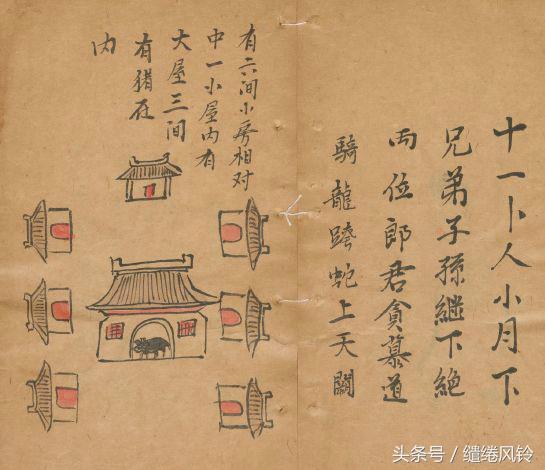 十一卜人小月下
兄弟子孫継下絶
両位郎君貪慕道
騎龍跨蛇上天闕
有六间小房相对
中一小屋内有
大屋三间
有猪在
内
头条号 / 缱绻风铃